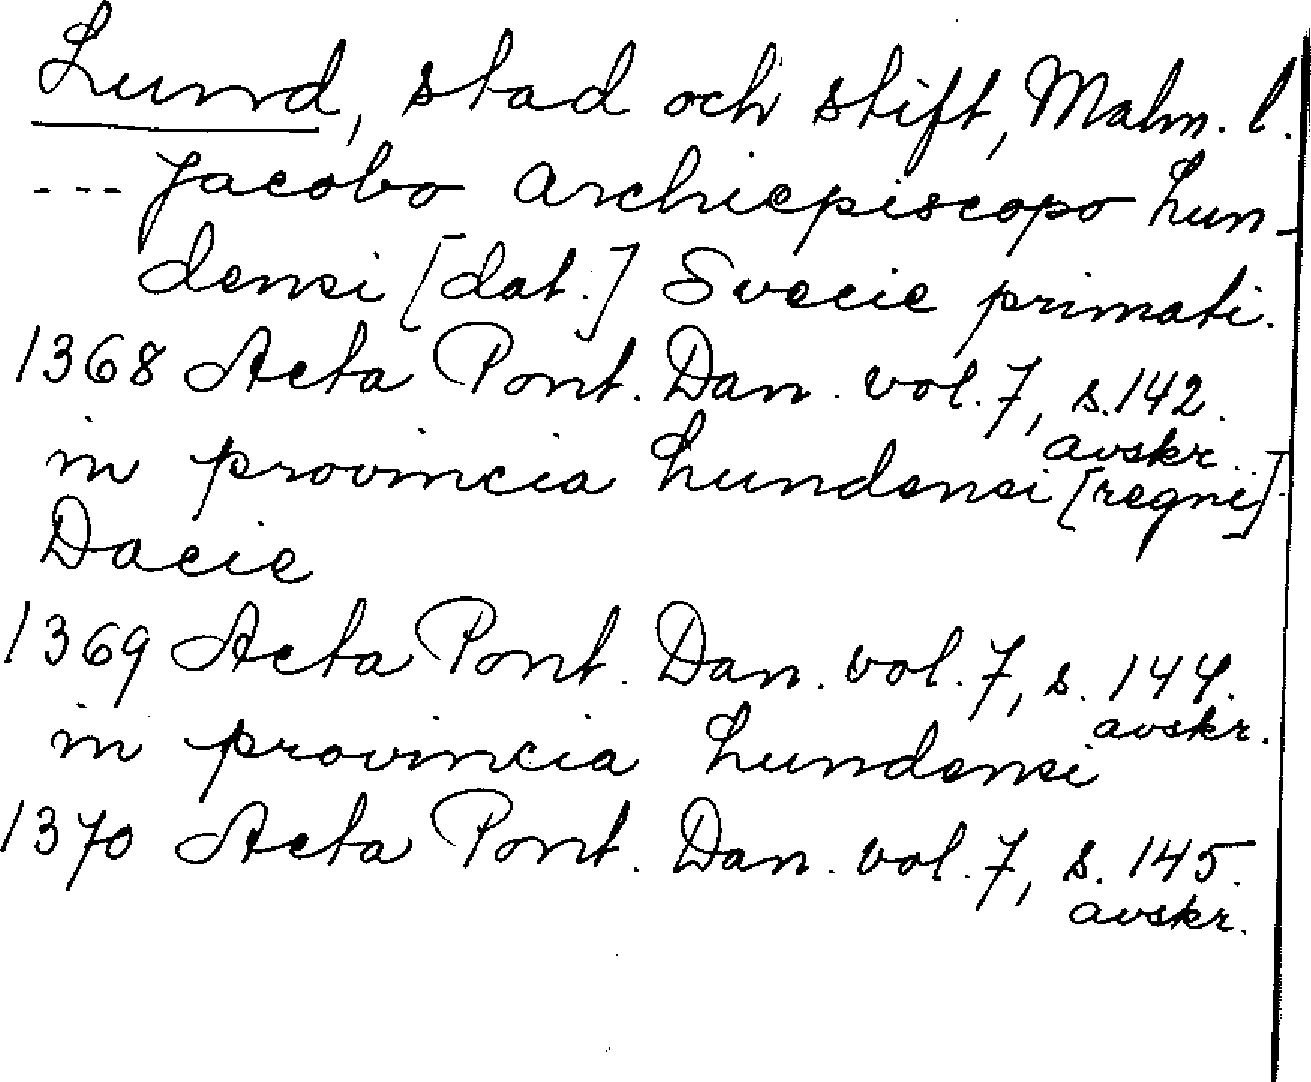 Lund, stad och stift, Malm. l.
--- Jacobo Archiepiscopo Lun-
densi [dat.] Svecie primati.
1368 Acta Pont. Dan. vol. 7, s. 142.
avskr.
in provincia Lundensi [regni]
Dacie
1369 Acta Pont. Dan. vol. 7, s. 144.
avskr.
in provincia Lundensi
1370 Acta Pont. Dan. vol. 7, s. 145.
avskr.